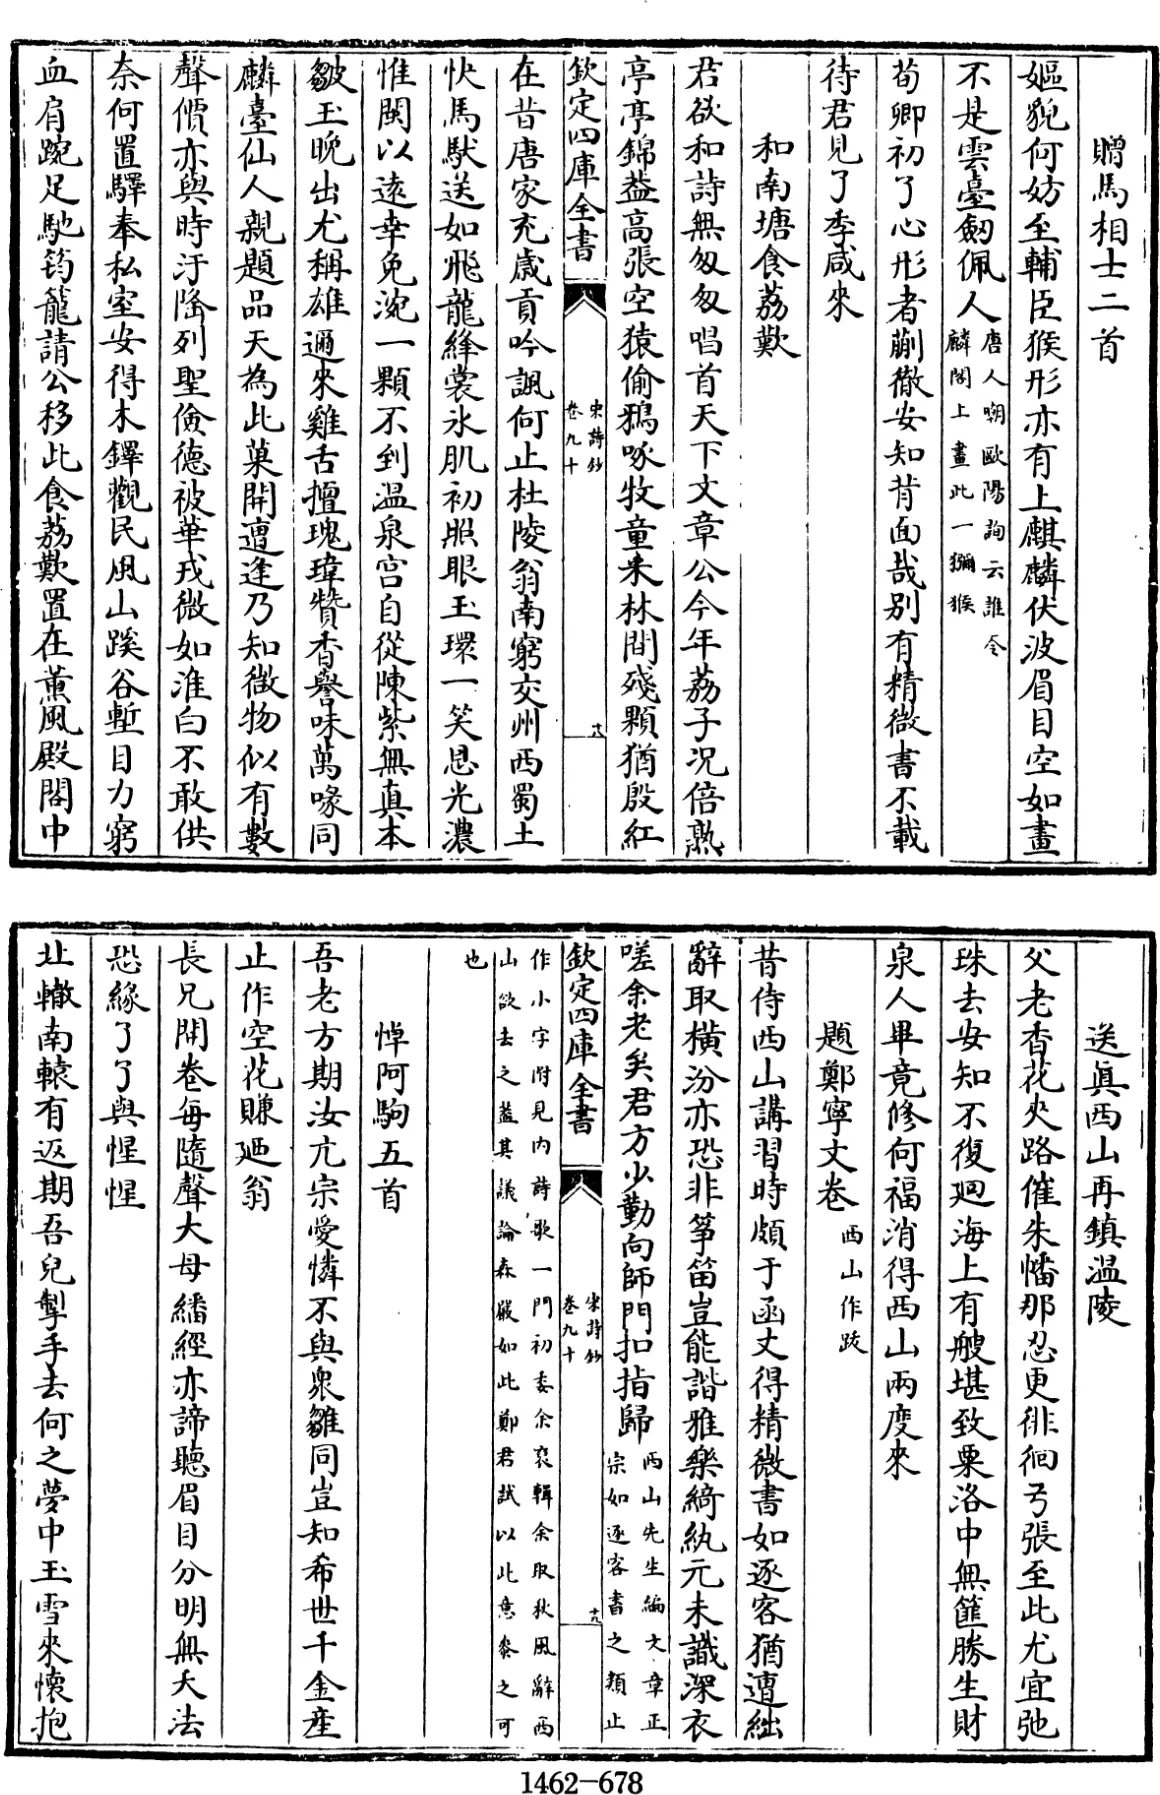 贈馬相士二首
嫗貌何妨至輔臣猴形亦有上麒麟伏波眉目空如畫
不是雲臺劔佩人唐人嘲歐陽詢云誰令麟閣上畫此一獼猴
荀卿初了心形者蒯徹安知背面哉别有精微書不載
待君見了季咸來
和南塘食荔歎
君欲和詩無匆匆唱首天下文章公今年荔子況倍熟
亭亭錦蓋高張空猿偷鴉啄牧童来林間殘顆猶殷紅
欽定四庫全書
宋詩鈔
卷九十
在昔唐家充歲貢吟諷何止杜陵翁南窮交州西蜀土
快馬馱送如飛龍絳裳氷肌初照眼玉環一笑恩光濃
惟閩以逺幸免涴一顆不到温泉宫自從陳紫無真本
皺玉晚出尤稱雄邇來雞舌擅瑰瑋贊香譽味萬喙同
麟臺仙人親題品天為此菓開遭逢乃知微物似有數
聲價亦與時汙隆列聖儉德被華戎微如淮白不敢供
奈何置驛奉私室安得木鐸觀民風山蹊谷塹目力窮
血肩踠足馳筠籠請公移此食荔歎置在薰風殿閣中
送眞西山再鎮温陵
父老香花夾路催朱幡那忍更徘徊弓張至此尤宜弛
珠去安知不復廻海上有艘堪致粟洛中無簁勝生財
泉人畢竟修何福消得西山兩度來
題鄭寧文卷西山作跋
昔侍西山講習時頗于函丈得精微書如逐客猶遭絀
辭取橫汾亦恐非筝笛豈能諧雅樂綺紈元未識深衣
嗟余老矣君方少勤向師門扣指歸西山先生編文章正宗如逐客書之類止
欽定四庫全書
宋詩鈔
卷九十
作小字附見内詩歌一門初委余裒輯余取秋風辭西
山欲去之蓋其議論森嚴如此鄭君試以此意叅之可
也
悼阿駒五首
吾老方期汝亢宗愛憐不與衆雛同豈知希世千金產
止作空花賺廼翁
長兄開卷每隨聲大母繙經亦諦聽眉目分明無夭法
恐緣了了與惺惺
北轍南轅有返期吾兒掣手去何之夢中玉雪來懷抱
1462-678